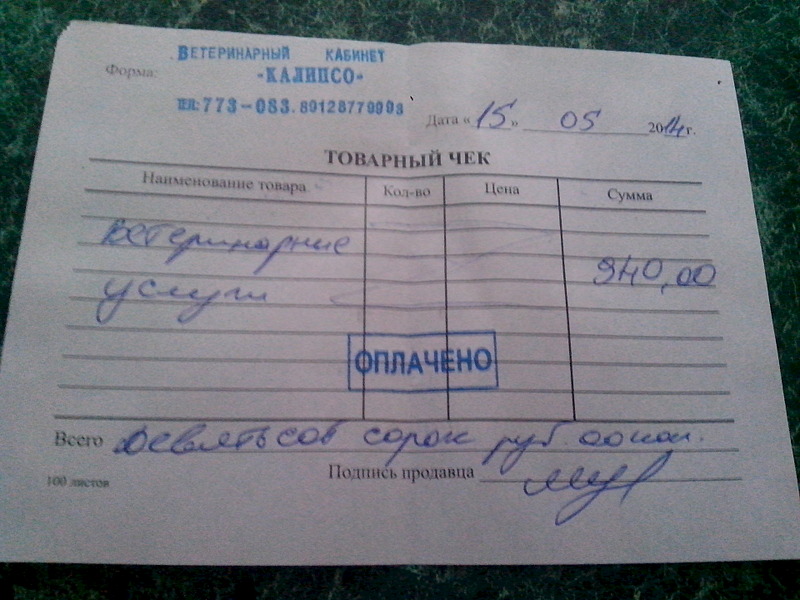 ВЕТЕРИНАРНЫЙ КАБИНЕТ
Форма:
-КАЛИПСО-
ТЕЛ: 773-083. 89128779993
Дата « 15 » 05 2014г.
ТОВАРНЫЙ ЧЕК
Наименование товара Кол-во Цена Сумма
ветеринарние
940,00
услуги
ОПЛАЧЕНО
Всего Девятьсот сорок руб. 00 коп.
Подпись продавца
100 листов